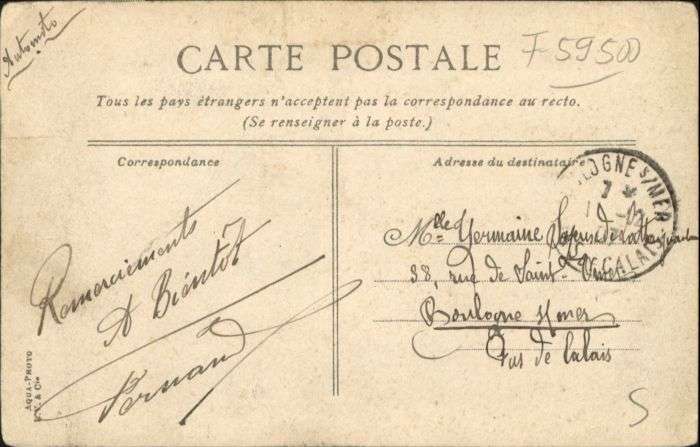 Automoto
CARTE POSTALE
F-59500
Tous les pays étrangers n'acceptent pas la correspondance au recto.
(Se renseigner à la poste.)
Correspondance
Remerciements
A Bientôt
Fernand
AQUA-PHOTO
L.V. & Cie
Adresse du destinataire
Mlle Germaine
88, rue de Saint-Omer
Boulogne s/mer
Pas de Calais
LOGNE S/MER
7 *
CALAIS
S